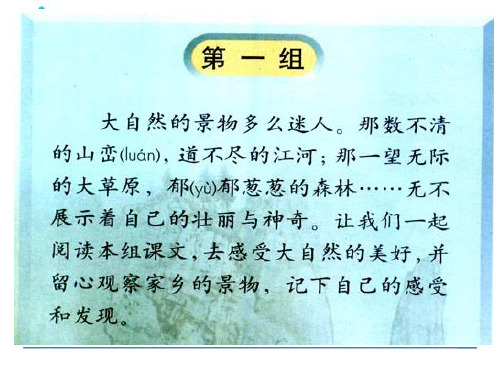 第一组
大自然的景物多么迷人。那数不清
的山峦(luán)，道不尽的江河；那一望无际
的大草原，郁(yù)郁葱葱的森林……无不
展示着自己的壮丽与神奇。让我们一起
阅读本组课文，去感受大自然的美好，并
留心观察家乡的景物，记下自己的感受
和发现。